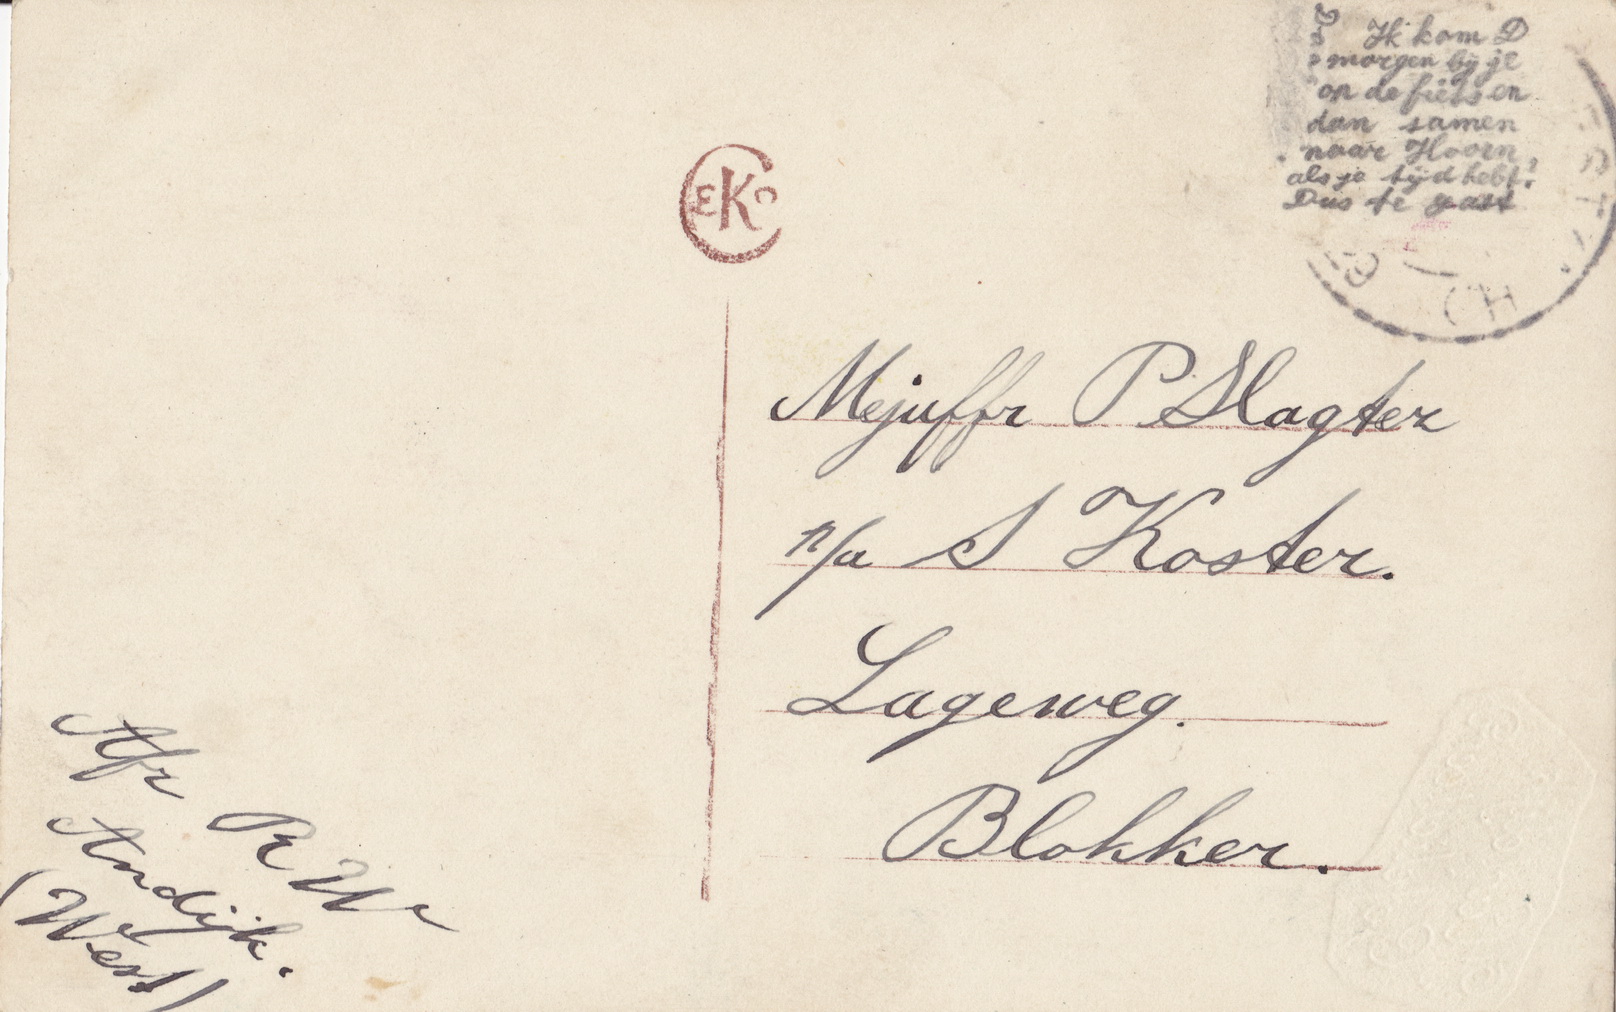 Ik kom D
morgen bij je
op de fiets en
dan samen
naar Hoorn,
als je tijd hebt!
Dus te gast
EKC
Mejuffr P Slagter
p/a S Koster.
Lageweg.
Blokker.
Afr R W
Andijk.
(West)